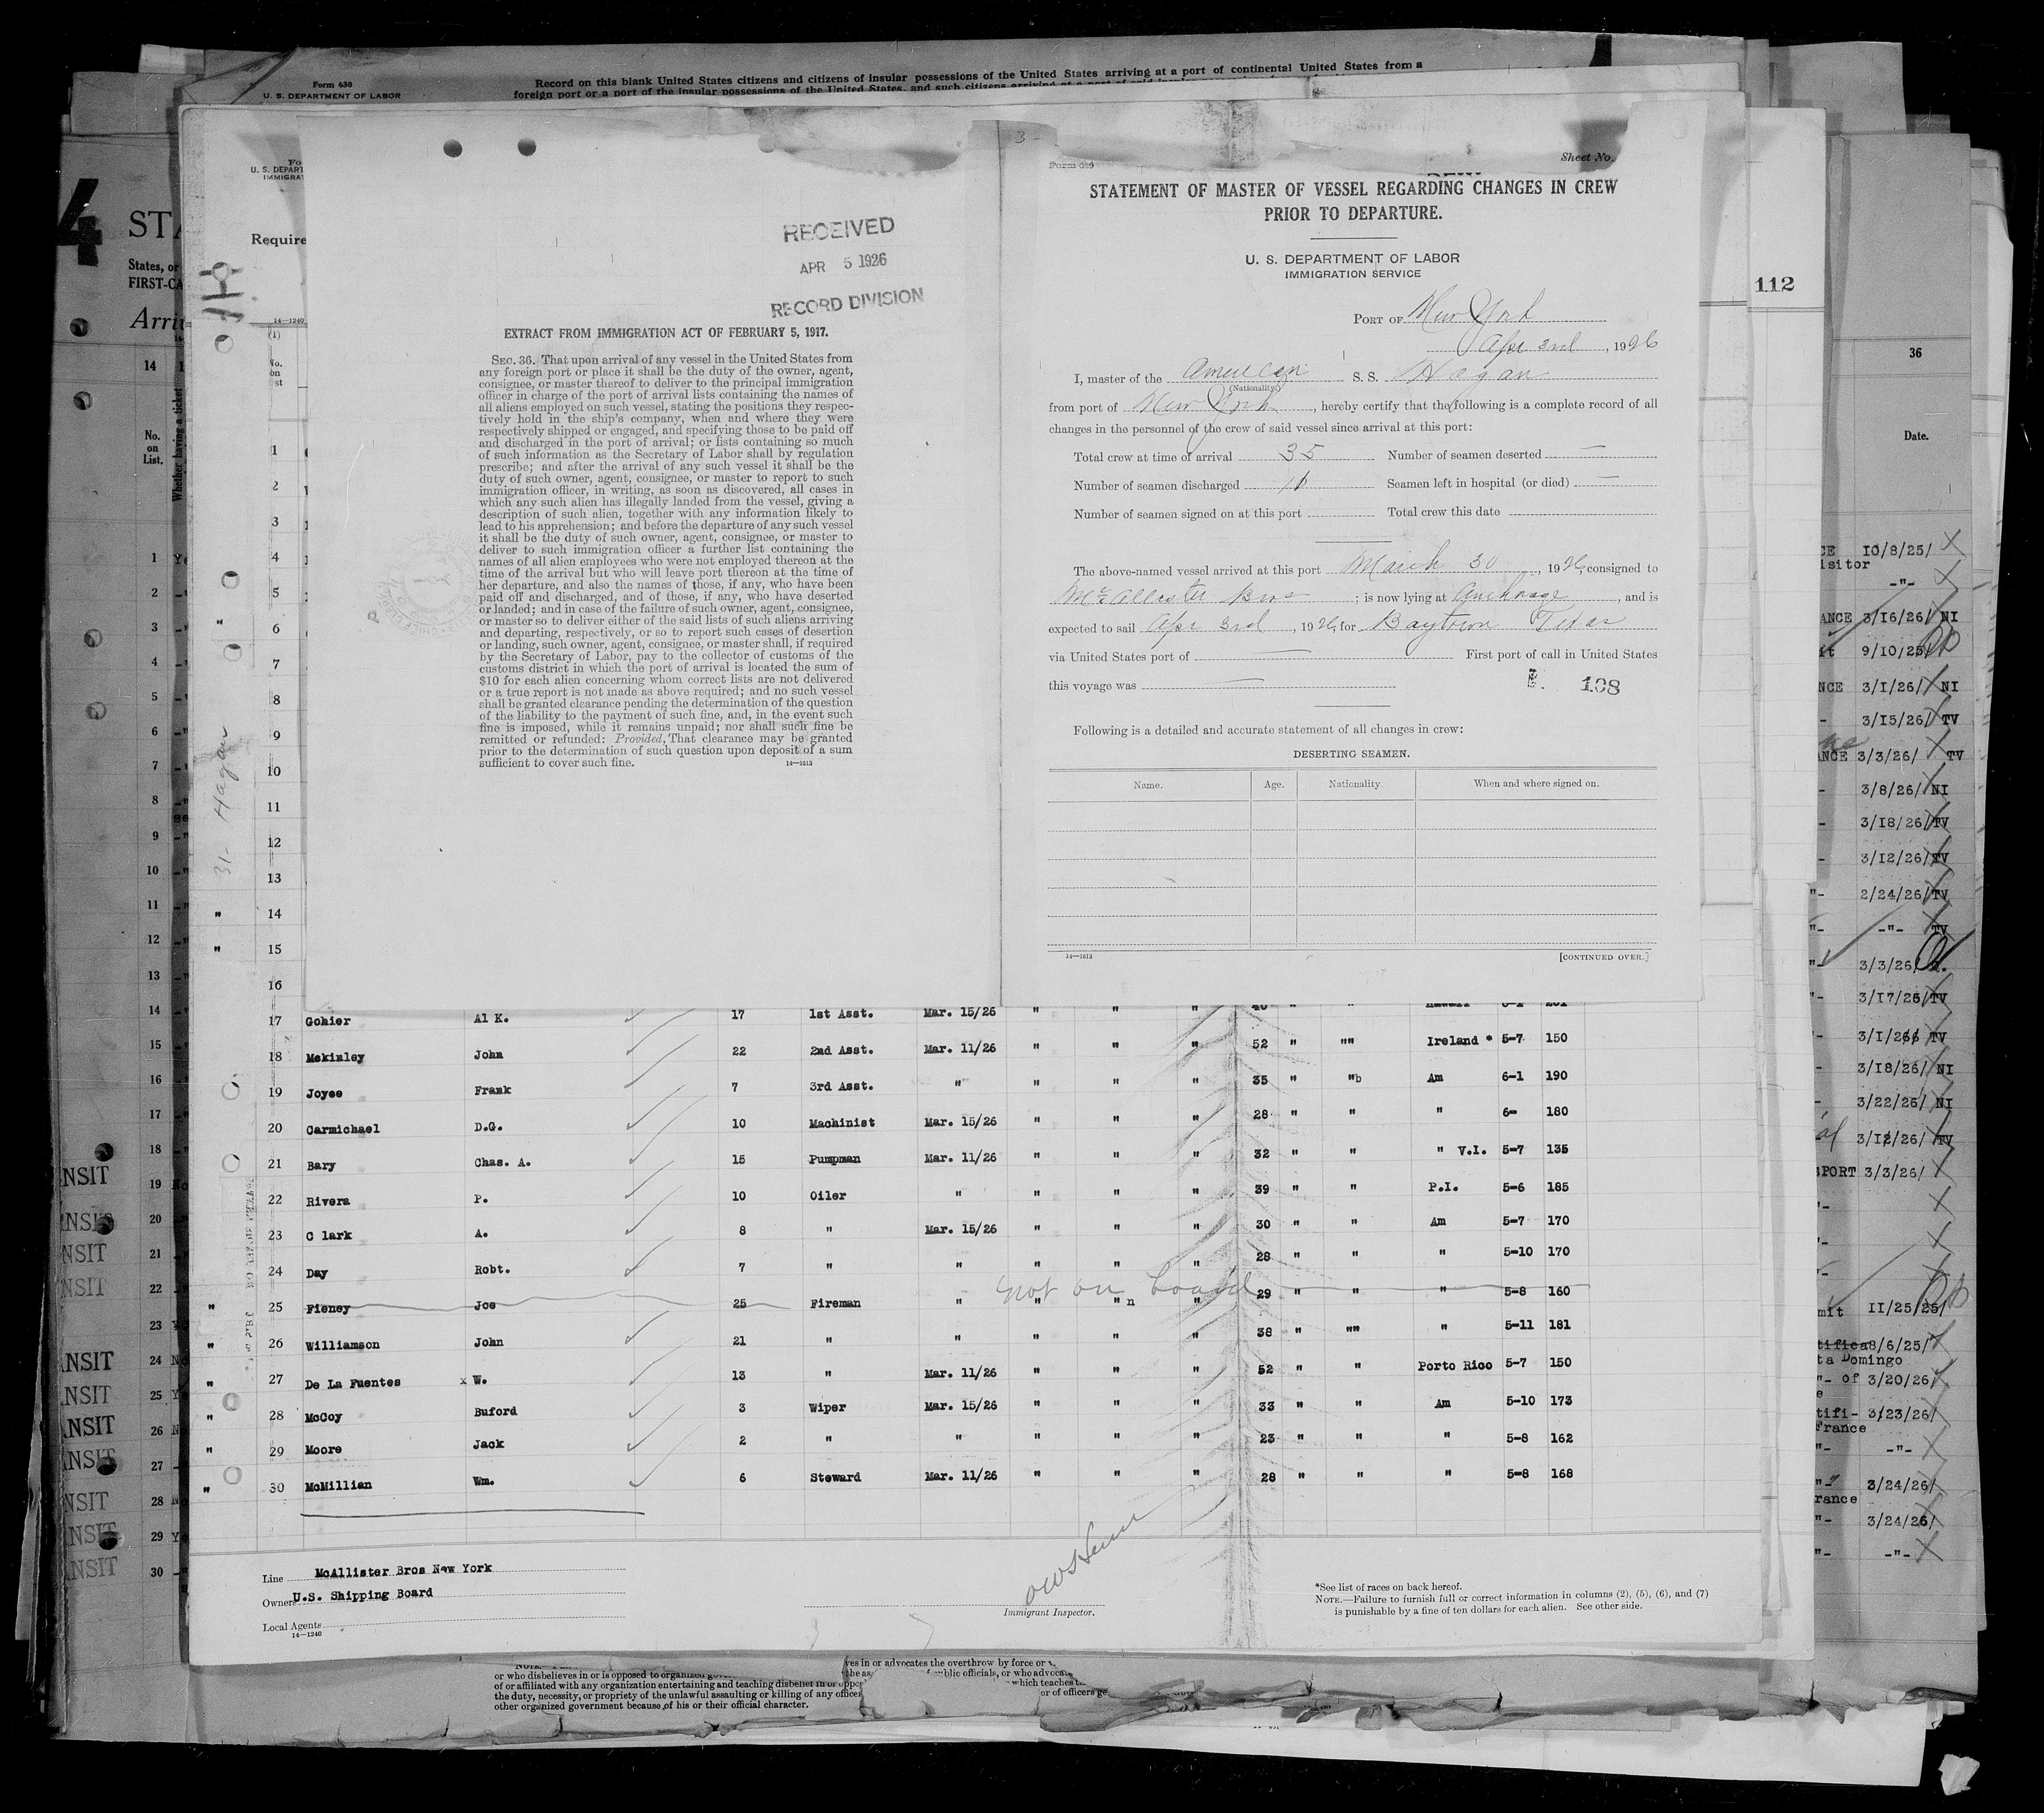 Form 630
U. S. DEPARTMENT OF LABOR
Record on this blank United States citizens and citizens of insular possessions of the United States arriving at a port of continental United States from a
foreign port or a port of the insular possessions of the United States, and such citizens arriving at a port of said insular possessions
RECEIVED
APR 5 1926
RECORD DIVISION
EXTRACT FROM IMMIGRATION ACT OF FEBRUARY 5, 1917.
SEC. 36. That upon arrival of any vessel in the United States from
any foreign port or place it shall be the duty of the owner, agent,
consignee, or master thereof to deliver to the principal immigration
officer in charge of the port of arrival lists containing the names of
all aliens employed on such vessel, stating the positions they respec-
tively hold in the ship's company, when and where they were
respectively shipped or engaged, and specifying those to be paid off
and discharged in the port of arrival; or lists containing so much
of such information as the Secretary of Labor shall by regulation
prescribe; and after the arrival of any such vessel it shall be the
duty of such owner, agent, consignee, or master to report to such
immigration officer, in writing, as soon as discovered, all cases in
which any such alien has illegally landed from the vessel, giving a
description of such alien, together with any information likely to
lead to his apprehension; and before the departure of any such vessel
it shall be the duty of such owner, agent, consignee, or master to
deliver to such immigration officer a further list containing the
names of all alien employees who were not employed thereon at the
time of the arrival but who will leave port thereon at the time of
her departure, and also the names of those, if any, who have been
paid off and discharged, and of those, if any, who have deserted
or landed; and in case of the failure of such owner, agent, consignee,
or master so to deliver either of the said lists of such aliens arriving
and departing, respectively, or so to report such cases of desertion
or landing, such owner, agent, consignee, or master shall, if required
by the Secretary of Labor, pay to the collector of customs of the
customs district in which the port of arrival is located the sum of
$10 for each alien concerning whom correct lists are not delivered
or a true report is not made as above required; and no such vessel
shall be granted clearance pending the determination of the question
of the liability to the payment of such fine, and, in the event such
fine is imposed, while it remains unpaid; nor shall such fine be
remitted or refunded: Provided, That clearance may be granted
prior to the determination of such question upon deposit of a sum
sufficient to cover such fine.
14—1613
Form 689
Sheet No.
STATEMENT OF MASTER OF VESSEL REGARDING CHANGES IN CREW
PRIOR TO DEPARTURE.
U. S. DEPARTMENT OF LABOR
IMMIGRATION SERVICE
PORT OF New York
Apr 3rd, 1926
I, master of the American S. S. Hagan
(Nationality)
from port of New York, hereby certify that the following is a complete record of all
changes in the personnel of the crew of said vessel since arrival at this port:
Total crew at time of arrival 35 Number of seamen deserted —
Number of seamen discharged Seamen left in hospital (or died) —
Number of seamen signed on at this port Total crew this date
The above-named vessel arrived at this port March 30, 1926, consigned to
McAllister Bros; is now lying at Anchorage, and is
expected to sail Apr 3rd, 1926, for Baytown Texas
via United States port of — First port of call in United States
this voyage was —
108
Following is a detailed and accurate statement of all changes in crew:
DESERTING SEAMEN.
Name. Age. Nationality. When and where signed on.
14—1613 [CONTINUED OVER.]
31- Hagan
17 Gohier Al K. 17 1st Asst. Mar. 15/26 " " "
18 Mckinley John 22 2nd Asst. Mar. 11/26 " " " 52 " "" Ireland * 5-7 150
19 Joyce Frank 7 3rd Asst. " " " " 35 " "b Am 6-1 190
20 Carmichael D.G. 10 Machinist Mar. 15/26 " " " 28 " " " 6- 180
21 Bary Chas. A. 15 Pumpman Mar. 11/26 " " " 32 " " " V.I. 5-7 135
22 Rivera P. 10 Oiler " " " " 39 " " P.I. 5-6 185
23 C lark A. 8 " Mar. 15/26 " " " 30 " " Am 5-7 170
24 Day Robt. 7 " " " " " 28 " " " 5-10 170
not on board
25 Fieney Joe 25 Fireman " " " n " 29 " " " 5-8 160
26 Williamson John 21 " " " " " 38 " "" " 5-11 181
27 De La Fuentes x W. 13 " Mar. 11/26 " " " 52 " " Porto Rico 5-7 150
28 McCoy Buford 3 Wiper Mar. 15/26 " " " 33 " " Am 5-10 173
29 Moore Jack 2 " " " " " 23 " " " 5-8 162
30 McMillian Wm. 6 Steward Mar. 11/26 " " " 28 " " " 5-8 168
Line McAllister Bros New York
Owners U.S. Shipping Board
Local Agents
14—1240
Immigrant Inspector.
*See list of races on back hereof.
NOTE.—Failure to furnish full or correct information in columns (2), (5), (6), and (7)
is punishable by a fine of ten dollars for each alien. See other side.
112
36
Date.
10/8/25/
-"-
3/16/26/ NI
9/10/25/
3/1/26/ NI
3/15/26/ TV
3/3/26/ TV
3/8/26/ NI
3/18/26/ TV
3/12/26/ TV
2/24/26/ TV
-"- TV
3/3/26/
3/17/26/ TV
3/1/26/ TV
3/18/26/ NI
3/22/26/ NI
3/12/26/ TV
3/3/26/
11/25/25/
8/6/25/
ta Domingo
"- of 3/20/26/
3/23/26/
-"-
3/24/26/
3/24/26/
-"-
or who disbelieves in or is opposed to organized
of or affiliated with any organization entertaining and teaching disbelief in or
the duty, necessity, or propriety of the unlawful assaulting or killing of any officer
other organized government because of his or their official character.